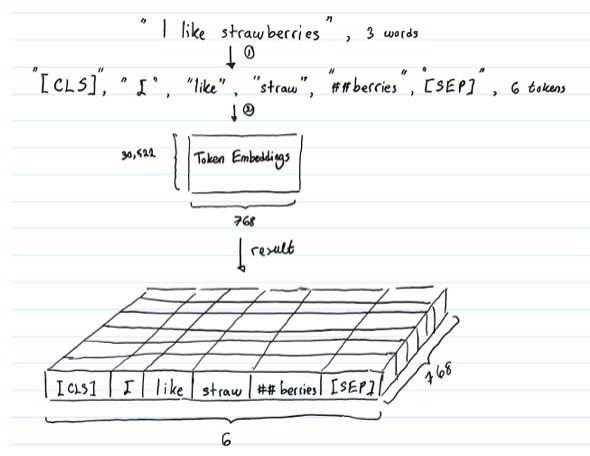 " I like strawberries ", 3 words
①
"[CLS]", " I ", "like", "straw", "##berries", "[SEP]", 6 tokens
②
30,522
Token Embeddings
768
result
[CLS] I like straw ##berries [SEP]
768
6